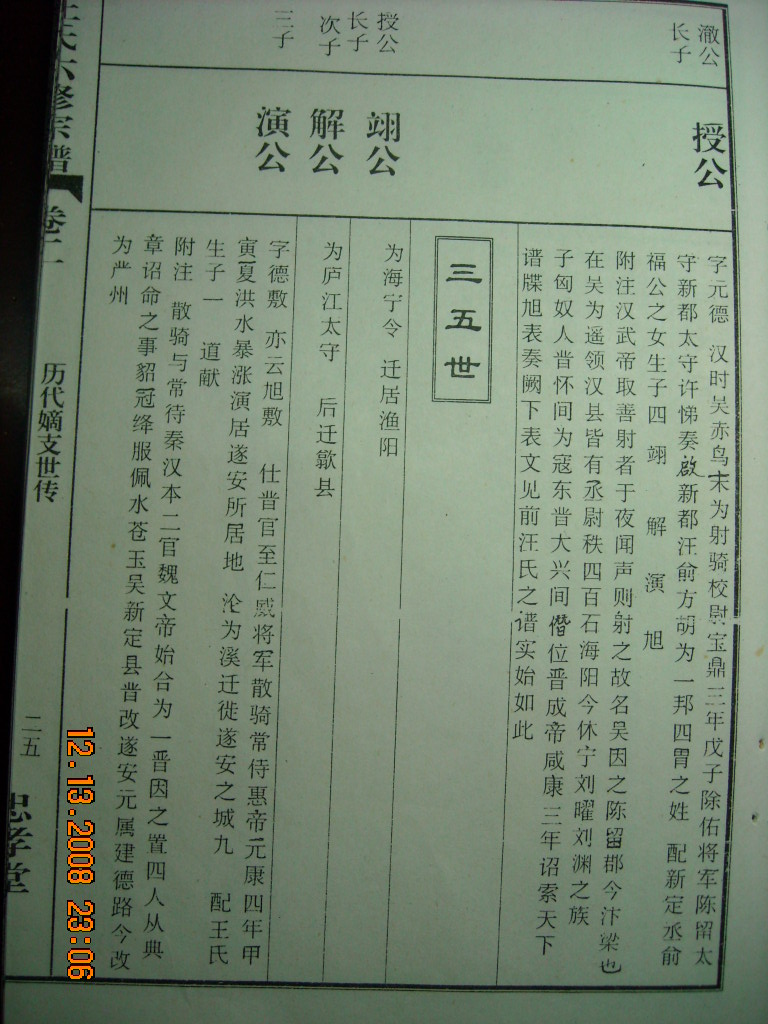 澈公
长子
授公
字元德 汉时吴赤乌末为射骑校尉宝鼎三年戊子除佑将军陈留太
守新都太守许悌奏啟新都汪俞方胡为一邦四胄之姓 配新定丞俞
福公之女生子四 翊 解 演 旭
附注汉武帝取善射者于夜闻声则射之故名吴因之陈留郡今汴梁也
在吴为遥领汉县皆有丞尉秩四百石海阳今休宁刘曜刘渊之族
子匈奴人晋怀间为寇东晋大兴间僭位晋成帝咸康三年诏索天下
谱牒旭表奏阙下表文见前汪氏之谱实始如此
三五世
授公
长子
翊公
为海宁令 迁居渔阳
次子
解公
为庐江太守 后迁歙县
三子
演公
字德敷 亦云旭敷 仕晋官至仁威将军散骑常侍惠帝元康四年甲
寅夏洪水暴涨演居遂安所居地 沦为溪迁徙遂安之城九 配王氏
生子一 道献
附注 散骑与常待秦汉本二官魏文帝始合为一晋因之置四人从典
章诏命之事貂冠绛服佩水苍玉吴新定县晋改遂安元属建德路今改
为严州
氏六修宗谱
卷二
历代嫡支世传
二五
忠孝堂
12.13.2008 23:06